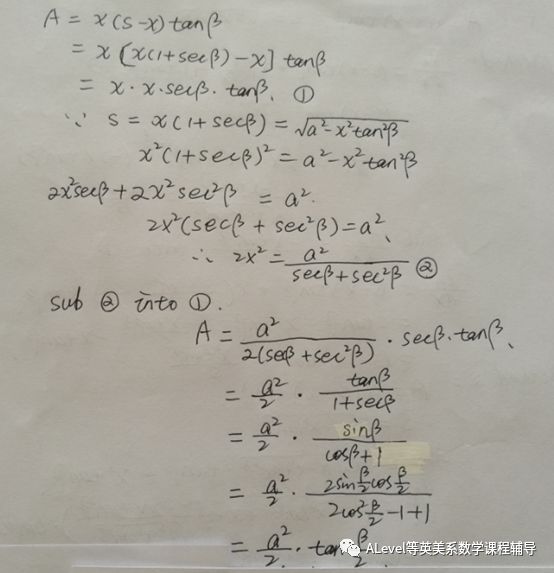 A = x(s-x)tanβ
= x[x(1+secβ)-x]tanβ
= x·x·secβ·tanβ. ①
∵ s = x(1+secβ) = √(a²-x²tan²β)
x²(1+secβ)² = a²-x²tan²β
2x²secβ+2x²sec²β = a².
2x²(secβ+sec²β)=a².
∴ 2x² = a²/(secβ+sec²β) ②
sub ② into ①.
A = a²/(2(secβ+sec²β)) · secβ·tanβ.
= a²/2 · tanβ/(1+secβ)
= a²/2 · sinβ/(cosβ+1)
= a²/2 · (2sin β/2 cos β/2)/(2cos² β/2 -1+1)
= a²/2 · tan β/2.
ALevel等英美系数学课程辅导